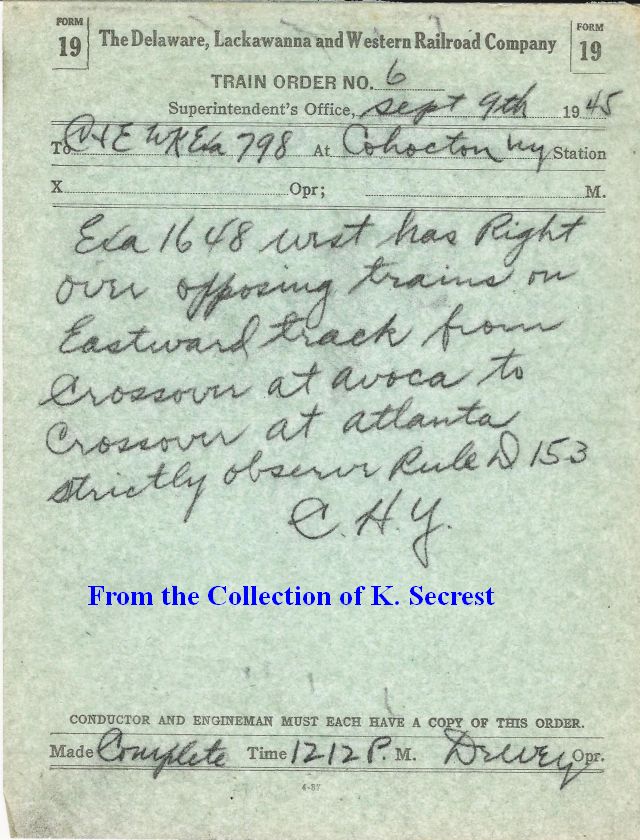 FORM 19 The Delaware, Lackawanna and Western Railroad Company FORM 19
TRAIN ORDER NO. 6
Superintendent's Office, Sept 9th 1945
To C&E WK Exa 798 At Cohocton NY Station
X Opr; M.
Exa 1648 west has Right
over opposing trains on
Eastward track from
Crossover at avoca to
Crossover at atlanta
strictly observe Rule D 153
C. H. Y.
From the Collection of K. Secrest
CONDUCTOR AND ENGINEMAN MUST EACH HAVE A COPY OF THIS ORDER.
Made Complete Time 1212 P. M. Dewey Opr.
4-37